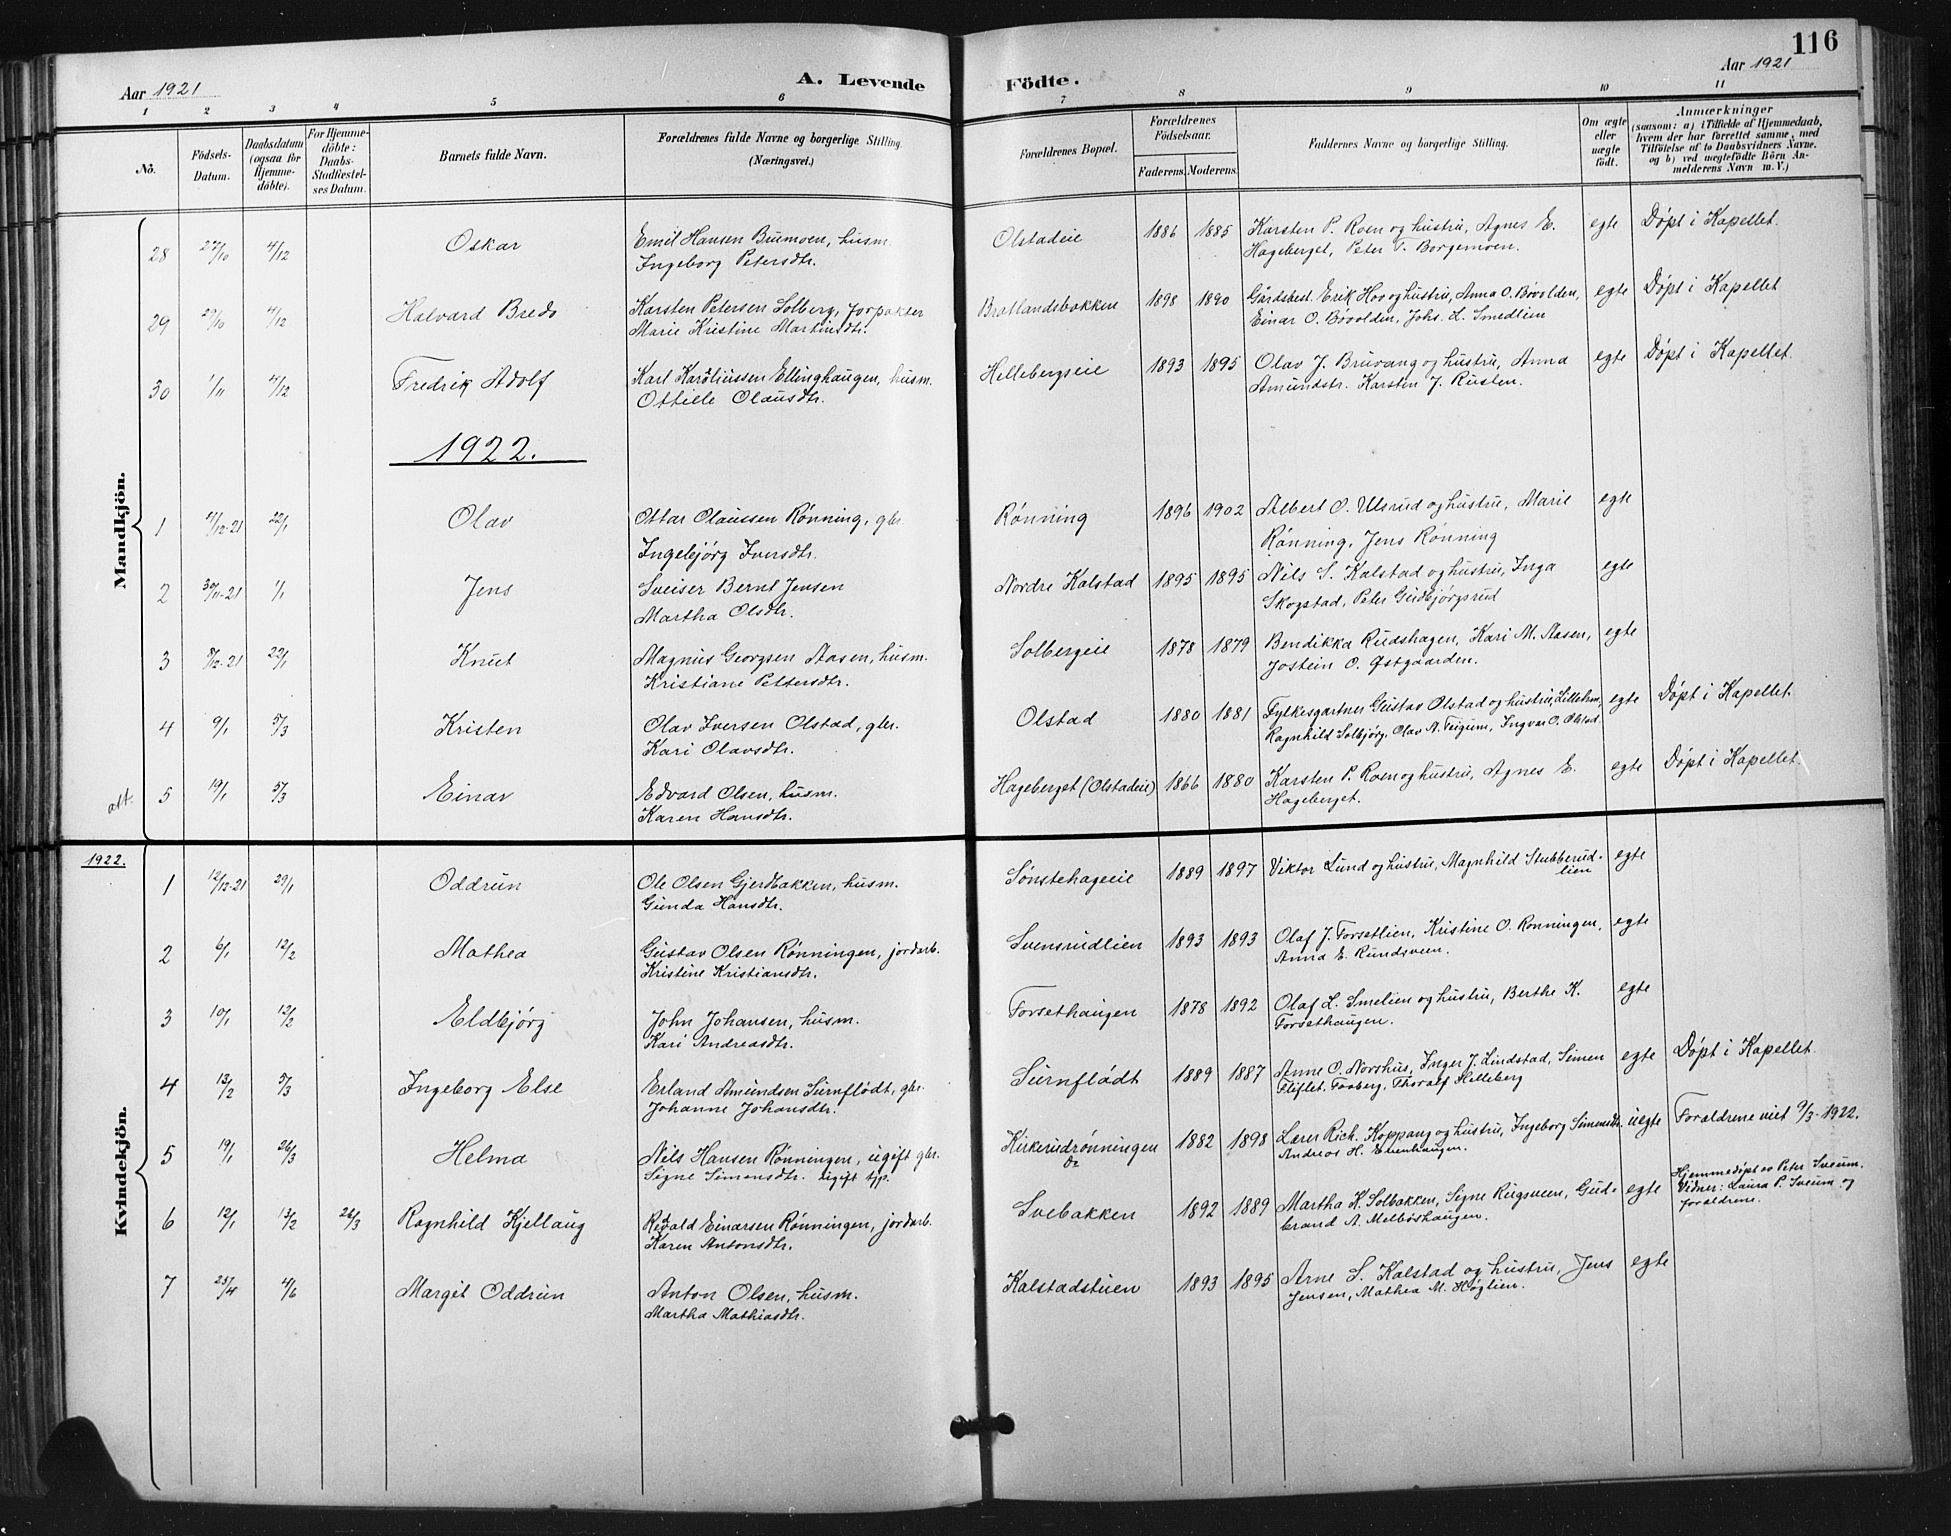 116
Aar 1921
A. Levende Födte.
Aar 1921
1 2 3 4 5 6 7 8 9 10 11
No.
Födsels-Datum.
Daabsdatum (ogsaa for Hjemme-döbte).
For Hjemme-döbte: Daabs-Stadfæstel-ses Datum.
Barnets fulde Navn.
Forældrenes fulde Navne og borgerlige Stilling. (Næringsvei.)
Forældrenes Bopæl.
Forældrenes Födselsaar.
Faderens. Moderens.
Faddernes Navne og borgerlige Stilling.
Om ægte eller uægte födt.
Anmærkninger
(saasom: a) i Tilfælde af Hjemmedaab, hvem der har forrettet samme, med Tilföielse af to Daabsvidners Navne, og b) ved uægtefödte Börn An-melderens Navn m. V.)
Mandkjön.
28 27/10 4/12 Oskar Emil Hansen Buumoen, husm. Olstadeie 1886 1885 Karsten P. Roen og hustru, Agnes E. egte Døpt i Kapellet.
Ingeborg Petersdtr. Hageberget, Peter T. Borgemoen.
29 29/10 4/12 Halvard Bredo Karsten Petersen Solberg, forpakter Bratlandsbakken 1898 1890 Gårdsbest. Erik Hov og hustru, Anna O. Bøvolden, egte Døpt i Kapellet
Marie Kristine Martinsdtr. Einar O. Bøvolden, Johs. L. Smedlien
30 1/11 4/12 Fredrik Adolf Karl Karoliussen Ellinghaugen, husm. Hellebergseie 1893 1895 Olav J. Bruvang og hustru, Anna egte Døpt i Kapellet.
Ottilie Olausdtr. Amundstr. Karsten J. Rusten.
1922.
1 /12-21 22/1 Olav Ottar Olaussen Rønning, gbr. Rønning 1896 1902 Albert O. Ulsrud og hustru, Marie egte
Ingebjørg Iversdtr. Rønning, Jens Rønning
2 30/11-21 1/1 Jens Sveiser Bernt Jensen Nordre Kalstad 1895 1895 Nils S. Kalstad og hustru, Inga egte
Martha Olsdtr. Skogstad, Peter Gudbjørgsrud
3 /12-21 22/1 Knut Magnus Georgsen Aasen, husm. Solbergeie 1878 1879 Bendikka Rudshagen, Kari M. Aasen, egte
Kristiane Pettersdtr. Jostein O. Østgaarden.
4 9/1 5/3 Kristen Olav Iversen Olstad, gbr. Olstad 1880 1881 Fylkesgartner Gustav Olstad og hustru, Lilleham, egte Døpt i Kapellet.
Kari Olavsdtr. Ragnhild Solbjørg, Olav A. Feigum, Ingvar O. Olstad.
att. 5 19/1 5/3 Einar Edvard Olsen, husm. Hageberget (Olstadeie) 1866 1880 Karsten P. Roen og hustru, Agnes E. egte Døpt i Kapellet.
Karen Hansdtr. Hageberget.
1922.
Kvindekjön.
1 12/12-21 29/1 Oddrun Ole Olsen Gjerdbakken, husm. Sønstehageeie 1889 1897 Viktor Lund og hustru, Magnhild Stubberud- egte
Gunda Hansdtr. lien
2 6/1 12/2 Mathea Gustav Olsen Rønningen, jordarb. Svensrudlien 1893 1893 Olaf J. Forsetlien, Kristine O. Rønningen, egte
Kristine Kristiansdtr. Anna E. Rundsveen.
3 10/1 12/2 Eldbjørg John Johansen, husm. Forsethaugen 1878 1892 Olaf L. Smelien og hustru, Berthe K. egte
Kari Andreasdtr. Forsethaugen.
4 13/2 5/3 Ingeborg Else Erland Amundsen Surnflødt, gbr. Surnflødt 1889 1887 Anne O. Norshus, Inger J. Lindstad, Simen egte Døpt i Kapellet.
Johanne Johansdtr. Fliflet, Faaberg, Thoralf Helleberg
5 19/1 26/3 Helma Nils Hansen Rønningen, ugift gbr. Kirkerudrønningen 1882 1898 Lærer Rich. Koppang og hustru, Ingeborg Simensdtr. uegte Forældrene viet 9/3-1922.
Signe Simensdtr. ugift tjp. do Andreas H. Etrenhaugen.
6 12/1 13/2 26/3 Ragnhild Kjellaug Revald Einarsen Rønningen, jordarb. Svebakken 1892 1889 Martha K. Solbakken, Signe Rugsveen, Gud- egte Hjemmedøpt av Peter Sveum.
Karen Antonsdtr. brand A. Melbøshaugen. Vidner: Laura P. Sveum og
forældrene.
7 23/4 4/6 Margit Oddrun Anton Olsen, husm. Kalstadstuen 1893 1895 Arne S. Kalstad og hustru, Jens egte
Martha Mathiasdtr. Jensen, Mathea M. Høglien.